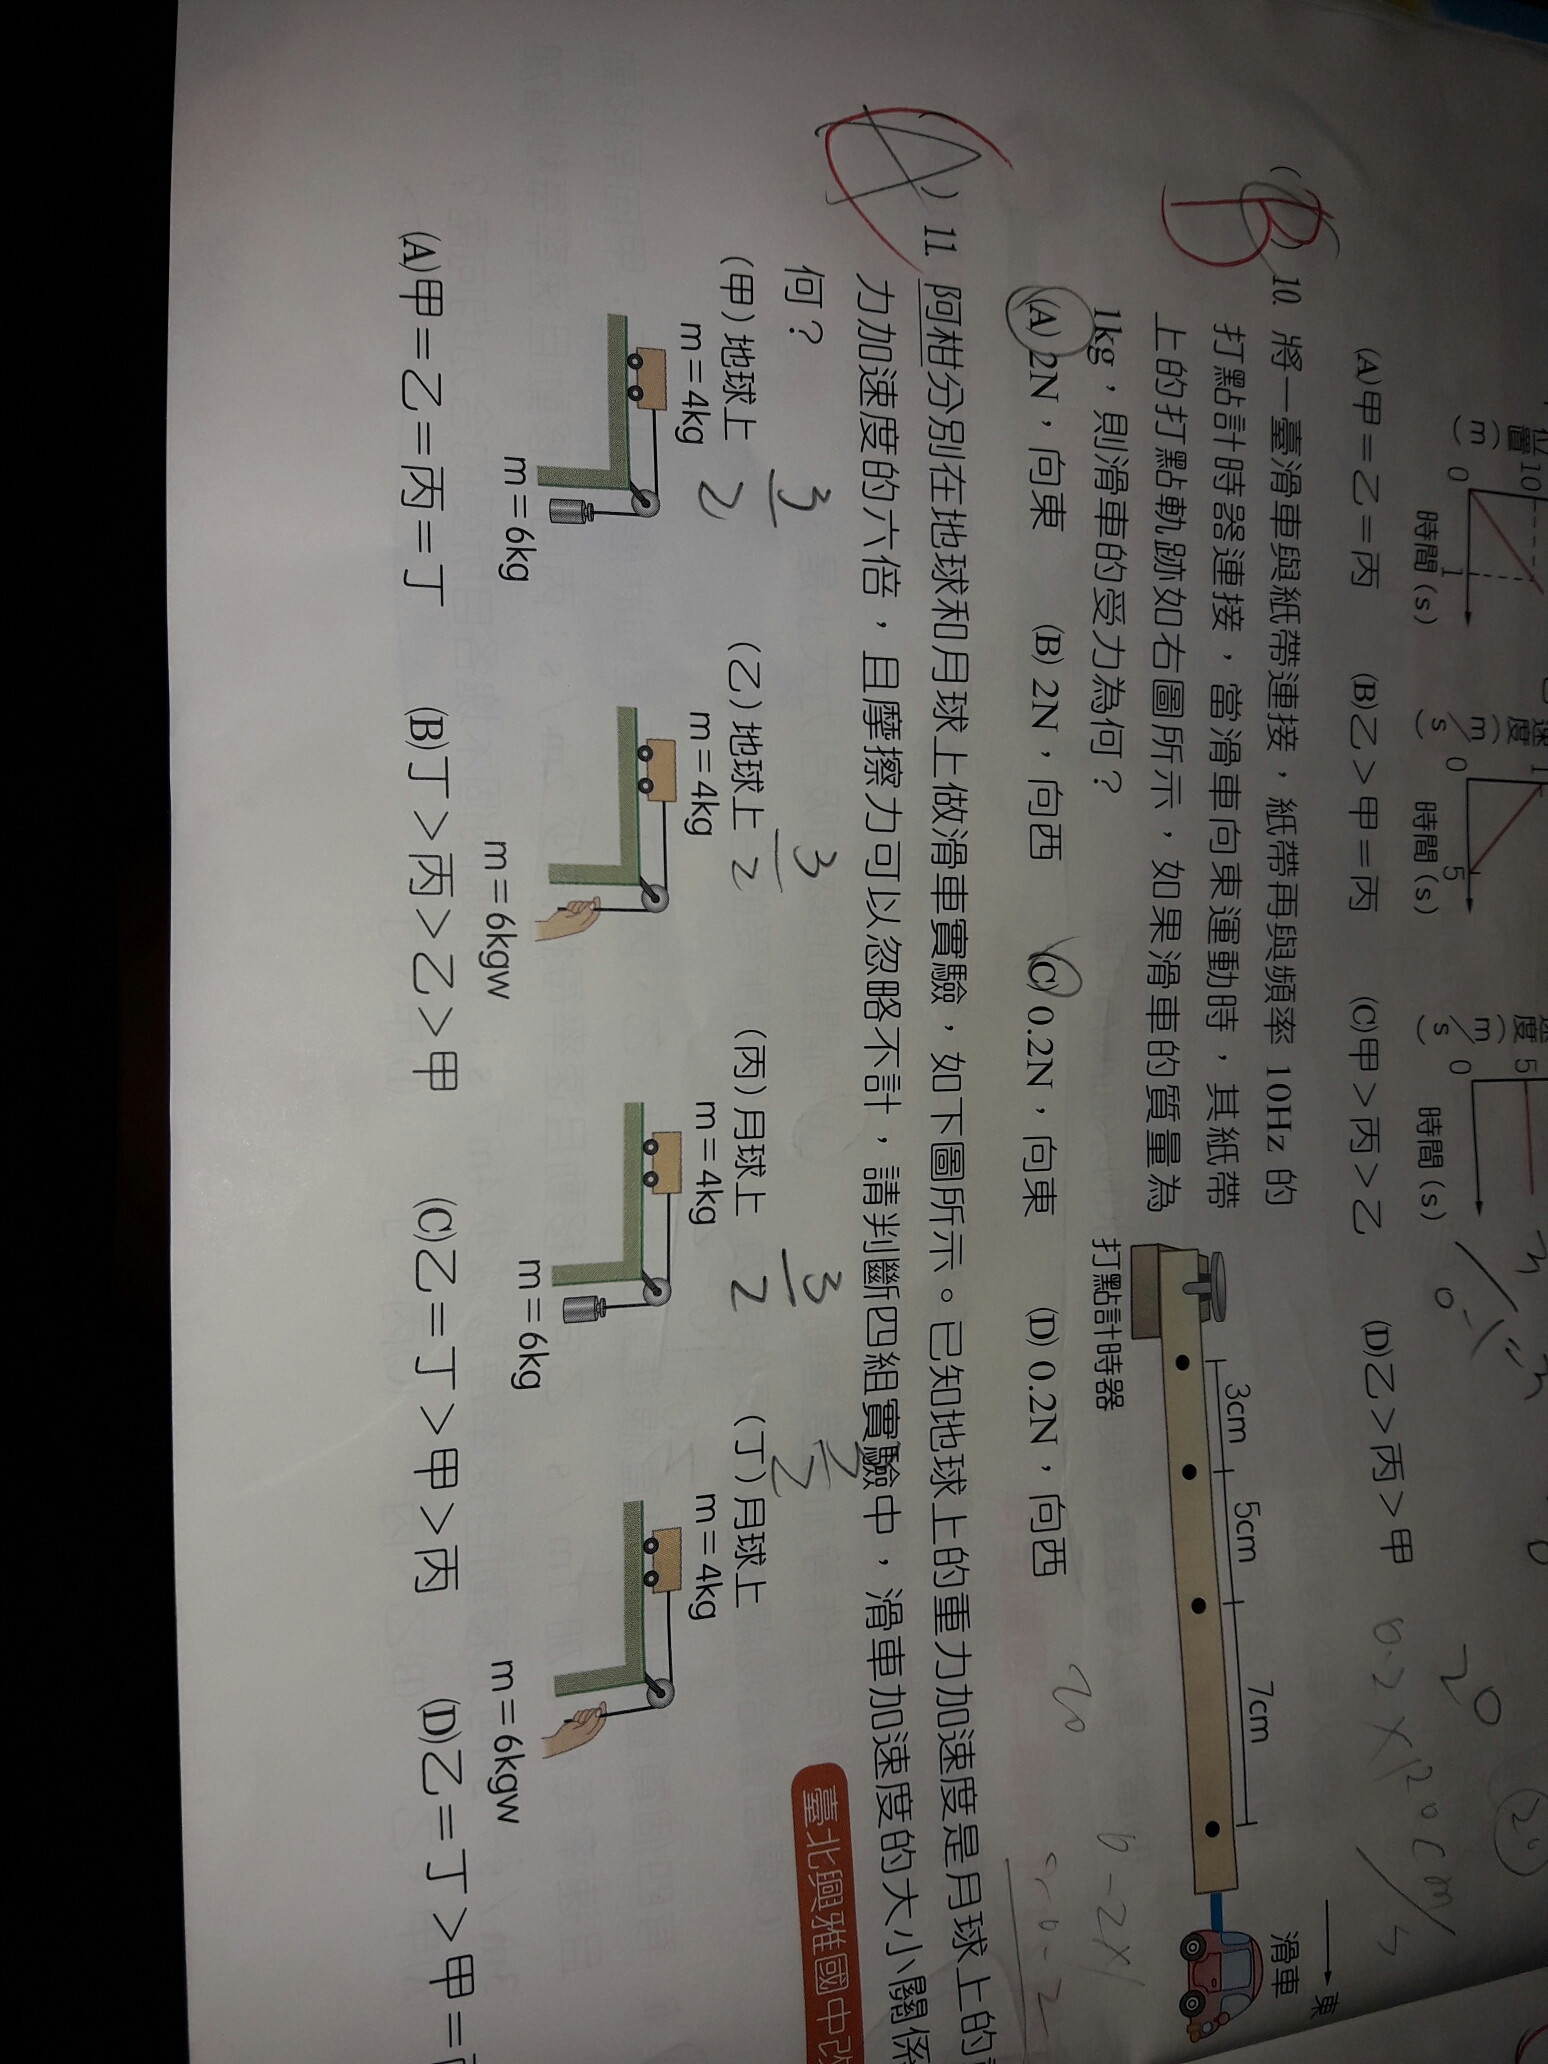 位置(m) 10 0 1 時間(s)
速度(m/s) 0 5 時間(s)
速度(m/s) 5 0 時間(s)
(A)甲=乙=丙 (B)乙>甲=丙 (C)甲>丙>乙 (D)乙>丙>甲
20
0.2
B
( ) 10. 將一臺滑車與紙帶連接,紙帶再與頻率 10Hz 的
打點計時器連接,當滑車向東運動時,其紙帶
上的打點軌跡如右圖所示,如果滑車的質量為
1kg,則滑車的受力為何?
東
滑車
3cm 5cm 7cm
打點計時器
(A) 2N,向東 (B) 2N,向西 (C) 0.2N,向東 (D) 0.2N,向西
20
A
( ) 11. 阿柑分別在地球和月球上做滑車實驗,如下圖所示。已知地球上的重力加速度是月球上的
力加速度的六倍,且摩擦力可以忽略不計,請判斷四組實驗中,滑車加速度的大小關係
何?
臺北興雅國中
3 3 3
2 2 2
(甲)地球上 (乙)地球上 (丙)月球上 (丁)月球上
m=4kg m=4kg m=4kg m=4kg
m=6kg m=6kgw m=6kg m=6kgw
(A)甲=乙=丙=丁 (B)丁>丙>乙>甲 (C)乙=丁>甲>丙 (D)乙=丁>甲=